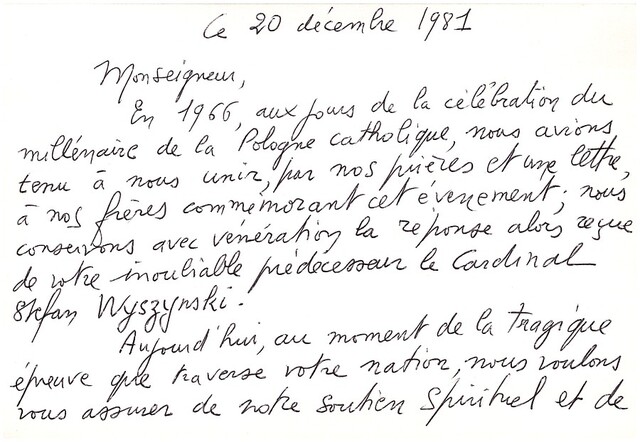 Ce 20 décembre 1981
Monseigneur,
En 1966, aux jours de la célébration du
millénaire de la Pologne catholique, nous avions
tenu à nous unir, par nos prières et une lettre,
à nos frères commémorant cet évènement; nous
conservons avec vénération la réponse alors reçue
de votre inoubliable prédécesseur le Cardinal
Stefan Wyszynski.
Aujourd'hui, au moment de la tragique
épreuve que traverse votre nation, nous voulons
vous assurer de notre soutien spirituel et de